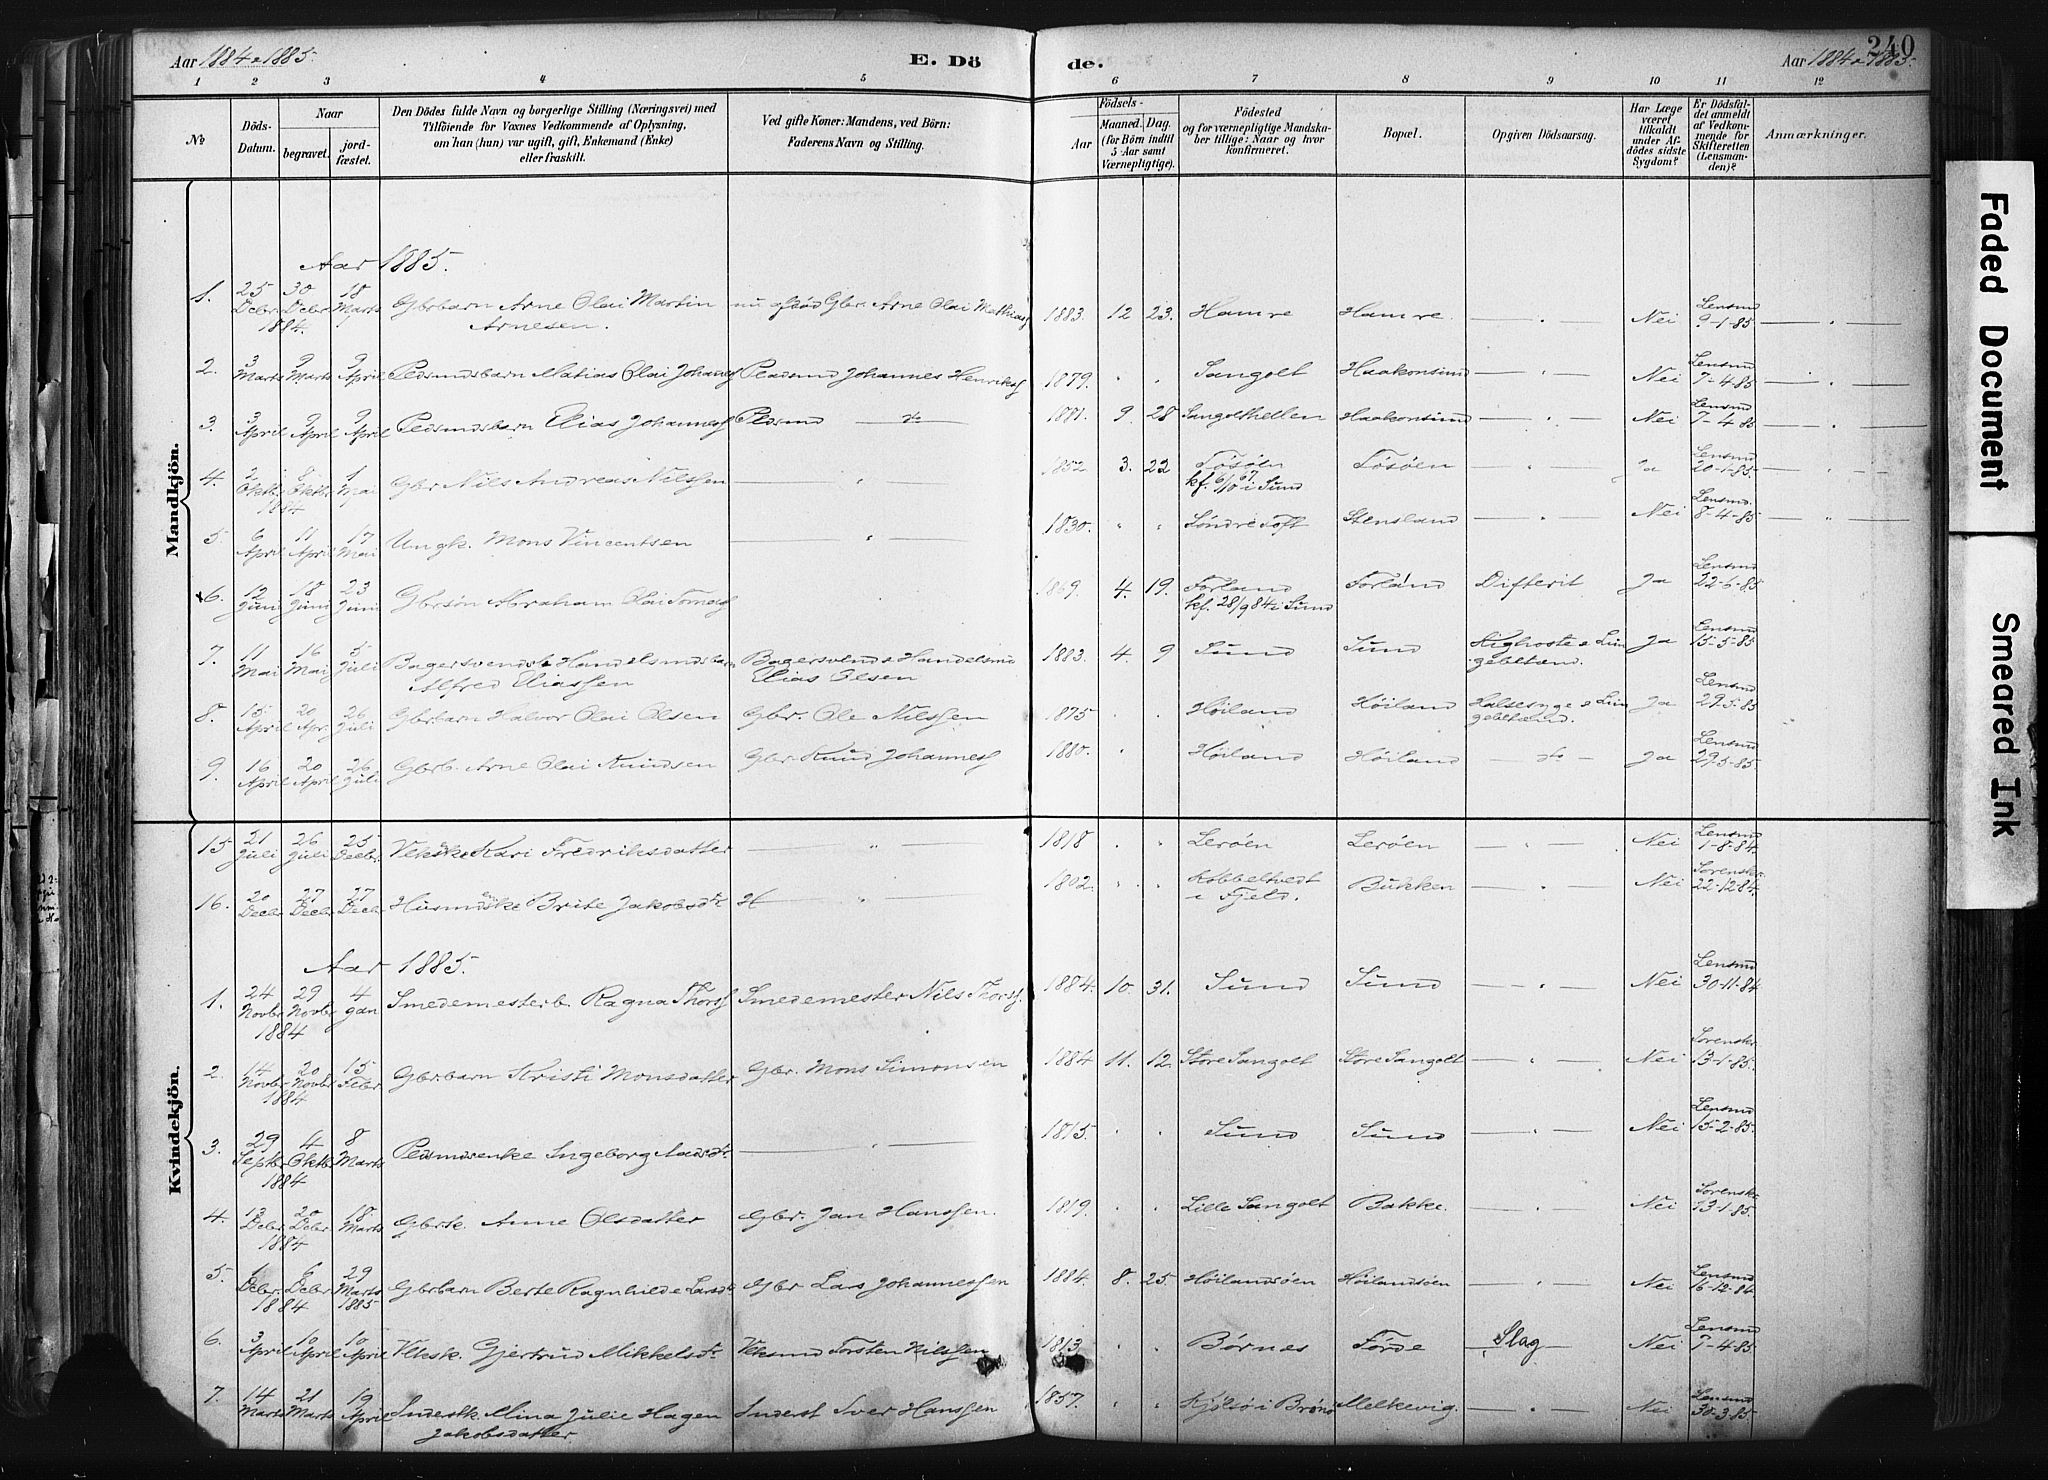 240
Aar 1884 & 1885.
E. Dö
de.
Aar 1884 & 1885.
1 2 3 4 5 6 7 8 9 10 11 12
No
Döds-Datum.
Naar
begravet.
jord-fæstet.
Den Dödes fulde Navn og borgerlige Stilling (Næringsvei) med
Tilföiende for Voxnes Vedkommende af Oplysning,
om han (hun) var ugift, gift, Enkemand (Enke)
eller fraskilt.
Ved gifte Koner: Mandens, ved Börn:
Faderens Navn og Stilling.
Födsels-
Aar
Maaned. Dag.
(for Börn indtil
5 Aar samt
Værnepligtige).
Födested
og for værnepligtige Mandska-
ber tillige: Naar og hvor
konfirmeret.
Bopæl.
Opgiven Dödsaarsag.
Har Læge
været
tilkaldt
under Af-
dödes sidste
Sygdom?
Er Dödsfal-
det anmeldt
af Vedkom-
mende for
Skifteretten
(Lensman-
den)?
Anmærkninger.
Mandkjön.
Aar 1885.
1. 25 Debr. 1884 30 Debr. 18 Marts Gbrbarn Arne Olai Martin Arnesen. nu afdød Gbr. Arne Olai Mathias 1883. 12 23. Hamre Hamre. — " — Nei Lensmd 9-1-85 — " —
2. 3 Marts 9 Marts 9 April Pladsmdsbarn Matias Olai Johannes Johannes 1879. " " Sangolt Haakonsund — " — Nei Lensmd 7-4-85 — " —
3. 3 April 9 April 9 April Pladsmdsbarn Elias Johannes Pladsmd — do — 1881. 9. 28 Sangolthellen Haakonsund — " — Nei Lensmd 7-4-85 — " —
4. 2 Oktb. 1884 8 Oktb. 1 Mai Gbr. Nils Andreas Nilssen — " — 1852. 3. 22 Tøsøen kf. 6/10 67 i Sund Tøsøen — " — Ja Lensmd 20-1-85
5. 6 April 11 April 17 Mai Ungk. Mons Vincentsen — " — 1830. " " Søndre Toft Stensland — " — Nei Lensmd 8-4-85 — " —
6. 12 Juni 18 Juni 23 Juni Gbrsøn Abraham Olai Tomas 1869. 4. 19. Forland kf. 28/9 84 i Sund Forland Difterit Ja Lensmd 22-6-85
7. 11 Mai 16 Mai 5 Juli Bagersvends & Handelsmdsbarn Alfred Eliassen Bagersvend & Handelsmd Elias Olsen 1883. 4. 9 Sund Sund Kighoste & Lungebetænd. Ja Lensmd 15-5-85
8. 15 April 20 Apr. 26 Juli Gbrbarn Halvor Olai Olsen Gbr. Ole Nilssen 1875 " " Høiland Høiland Halsesyge & Lungebetænd. Ja Lensmd 29-5-85
9. 16 April 20 April 26 Juli Gbrb. Arne Olai Knudsen Gbr. Knud Johannes 1880. " Høiland Høiland — do — Ja Lensmd 29-5-85
Kvindekjön.
15. 21 Juli 26 Juli 25 Decbr. Kari Fredriksdatter — " — 1818 " " Lerøen Lerøen — " — Nei Lensmd 1-8-84.
16. 20 Decbr. 27 Decbr. 27 Decbr. Husmdske Brite Jakobsdtr — " — 1802. " " Kobbeltvedt i Fjeld. Bukken — " — Nei Sorenskr. 22-12-84.
Aar 1885.
1. 24 Novbr. 1884 29 Novbr. 4 Jan Smedemesterb. Ragna Thorss Smedemester Nils Thorss. 1884. 10. 31. Sund Sund — " — Nei Lensmd 30-11-84
2. 14 Novbr. 1884 20 Novbr. 15 Febr Gbrbarn Kristi Monsdatter Gbr. Mons Simonsen 1884 11. 12. Store Sangolt Store Sangolt — " — Nei Sorenskr. 13-1-85.
3. 29 Septbr. 1884 4 Oktb. 8 Marts Pladsmdsenke Ingeborg — " — 1815. " " Sund Sund — " — Nei Lensmd 15-2-85.
4. 13 Debr. 1884 20 Debr. 18. Marts Gbrk. Anne Olsdatter Gbr. Jan Hanssen. 1819. " " Lille Sangolt Bakke. — " — Nei Sorenskr. 13-1-85.
5. 1 Debr. 1884 6 Debr. 29 Marts 1885 Gbrbarn Berte Ragnhilde Larsdt. Gbr Lars Johannessen 1884. 8. 25. Høilandsøen Høilandsøen — " — Nei Lensmd 16-12-84.
6. 3 April 10 April 10 April Gjertrud Mikkelsdtr. Torsten Nilssen 1813. " " Børnes Førde Slag Nei Lensmd 7-4-85
7. 14 Marts 21 Marts 19 April Inderstk. Mina Julie Hagen Jakobsdatter. Inderst Iver Hanssen 1857. " " Melkevig. — " — Nei Lensmd 30-3-85
Faded Document
Smeared Ink